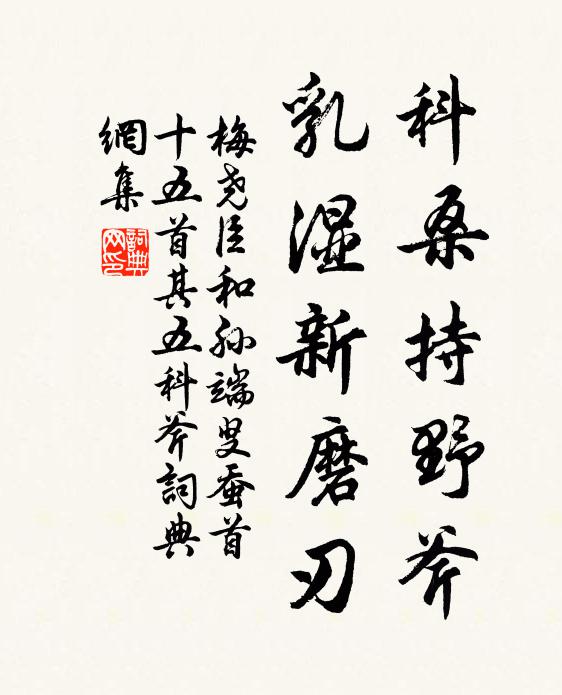 科桑持野斧
乳湿新磨刃
梅尧臣和孙端叟蚕首
十五首其五科斧詞典
網集
詞典网印